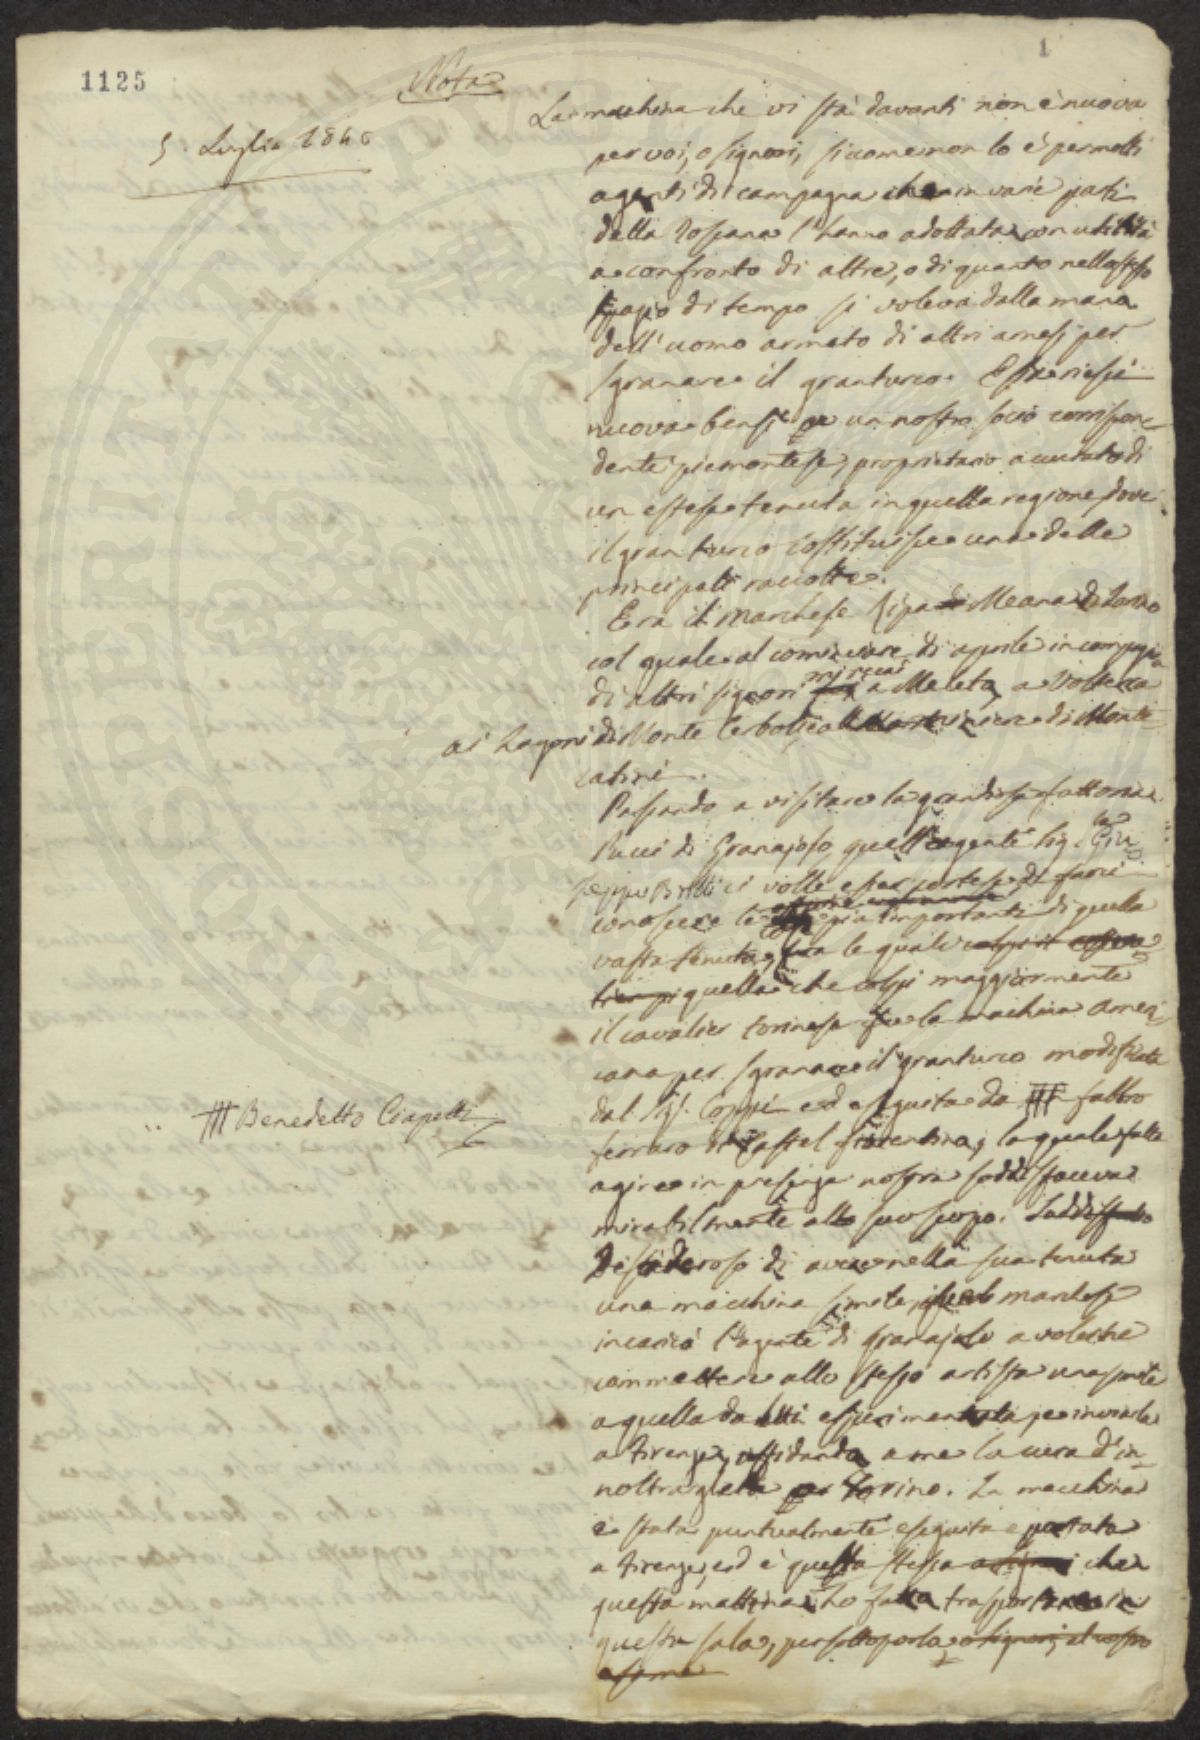 1
1125
Nota
5. Luglio 1846
La machina che vi stà davanti non è nuova
per voi, o signori, siccome non lo è per molti
agenti di campagna che in varie parti
della Toscana l'hanno adottata con utilità
a confronto di altre, o di quanto nello stesso
spazio di tempo si voleva dalla mano
dell'uomo armato di altri arnesi per
sgranare il granturco. Essa riescì
nuova bensì per un nostro socio corrispon-
dente piemontese, proprietario accurato di
un estesa tenuta in quella regione, dove
il gran turco costituisce una delle
principali raccolte.
Era il Marchese Ripa di Meana di Torino
col quale al cominciare di aprile in compagnia
di altri signori mi recai a Meleta, a Volterra
ai Lagoni di Monte Cerboli, e alle miniere di Monte
catini.
Passando a visitare la grandiosa fattoria
Pucci di Granajolo, quell'agente Sig. Giu
seppe ci volle esser cortese di farci
conoscere le più importanti di quella
vasta tenuta, fra le quali colpì il
quella che colpì maggiormente
il cavalier torinese fu la machina ameri-
cana per sgranare il granturco modificata
dal Sig. Coppi ed eseguita da ### fabbro
ferraro di Castel fiorentino, la quale fatta
### Benedetto Ciapetti
agire in presenza nostra soddisfaceva
mirabilmente allo suo scopo. Soddisfatto
Desideroso di avere nella sua tenuta
una macchina simile, il marchese
incaricò l'agente di Granajolo a volerne
commettere allo stesso artista una simile
a quella da lui esperimentata per inviarla
a Firenze, affidando a me la cura d'in-
noltrargliela per Torino. La macchina
è stata puntualmente eseguita e portata
a Firenze, ed è questa stessa o signori che
questa mattina ho fatta trasportare in
questa sala, per sottoporla o signori, al vostro
esame